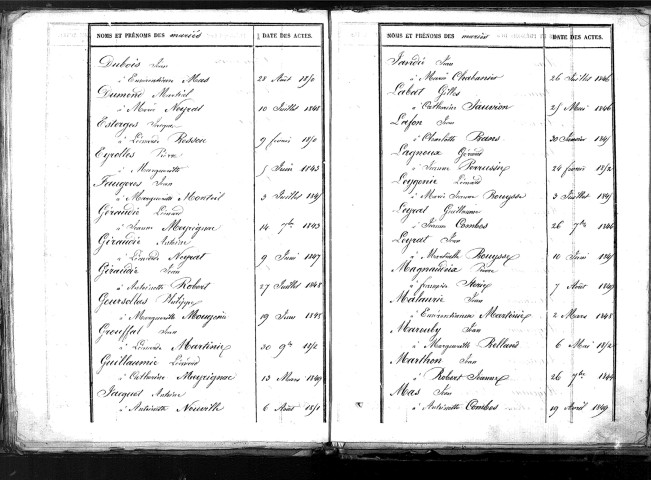 NOMS ET PRÉNOMS DES mariés DATE DES ACTES.
Dubois Jean
à Emérentienne Mas 28 Août 1850
Dumond Martial
à Marie Neyrat 10 Juillet 1848
Estorges
à Léonarde Rossou 9 février 1850
Eyrolles Pierre
à Marguerite 5 Juin 1843
Faugères Jean
à Marguerite Monteil 3 Juillet 1845
Giraudie Léonard
à Jeanne Meyrignac 14 7bre 1843
Giraudie Antoine
à Léonarde Neyrat 9 Juin 1847
Giraudie Jean
à Antoinette Robert 27 Juillet 1848
Goursolles Philippe
à Marguerite 19 Juin 1848
Grouffal Jean
à Léonarde Martinie 30 9bre 1852
Guillaumie Léonard
à Catherine Meyrignac 13 Mars 1849
Jacquet Antoine
à Antoinette Neuville 6 Août 1851
NOMS ET PRÉNOMS DES mariés DATE DES ACTES.
Jean
à Marie Chabanier 26 Juillet 1846
Labat Gilles
à Catherine Sauvion 25 Mai 1846
Lafon Jean
à Charlotte Bans 30 Janvier 1845
Lagnoux Gérard
à Jeanne 24 février 1852
Leygonie Léonard
à Marie Jeanne Bouysse 3 Juillet 1845
Leyrat Guillaume
à Jeanne Combes 26 7bre 1846
Leyrat Jean
à Martiale Bouysse 10 Juin 1845
Magnaudeix Pierre
à françoise 7 Août 1849
Malaurie Jean
à Emérentienne Martinie 2 Mars 1848
Jean
à Marguerite Relland 6 Mai 1852
Marthon Jean
à Robert Jeanne 26 7bre 1844
Mas Jean
à Antoinette Combes 19 Avril 1849